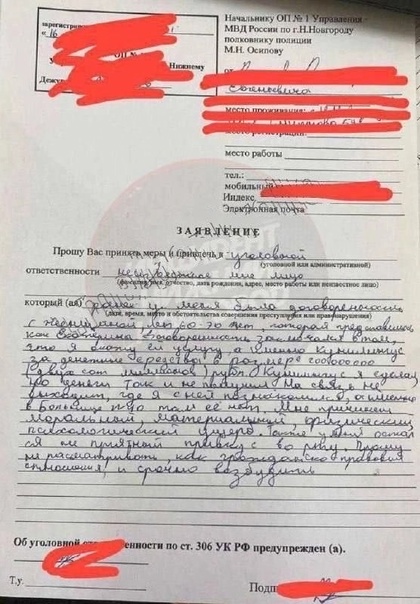 зарегистри
« 16
Нижнему
Дежу
Начальнику ОП № 1 Управления
МВД России по г.Н.Новгороду
полковнику полиции
М.Н. Осипову
от
место проживания:
место регистрации:
место работы
тел.:
мобильный
Индекс
Электронная почта
ЗАЯВЛЕНИЕ
Прошу Вас принять меры и привлечь к уголовной
(уголовной или административной)
ответственности неизвестное мне лицо
(фамилия, имя, отчество, дата рождения, адрес, место работы или неизвестное лицо)
который (ая) у меня была договоренность
(дата, время, место и обстоятельства совершения преступления или правонарушения)
с женщиной лет 60-70 лет, которая представилась
как Екатерина договоренность заключалась в том,
что я окажу ей услугу, а именно кунилингус
за денежные средства в размере 200000000
(двухсот миллионов) рубл. Кунилингус я сделал
но деньги так и не получил. На связь не
выходит, где я с ней познакомился, а именно
в больнице №40 там ее нет. Мне причинен
моральный, материальный, физический
психологический ущерб. у меня остал
ся не приятный привкус во рту. Прошу
не рассматривать, как гражданско правовые
отношения, и срочно возбудить
Об уголовной ответственности по ст. 306 УК РФ предупрежден (а).
Т.у.
Подп